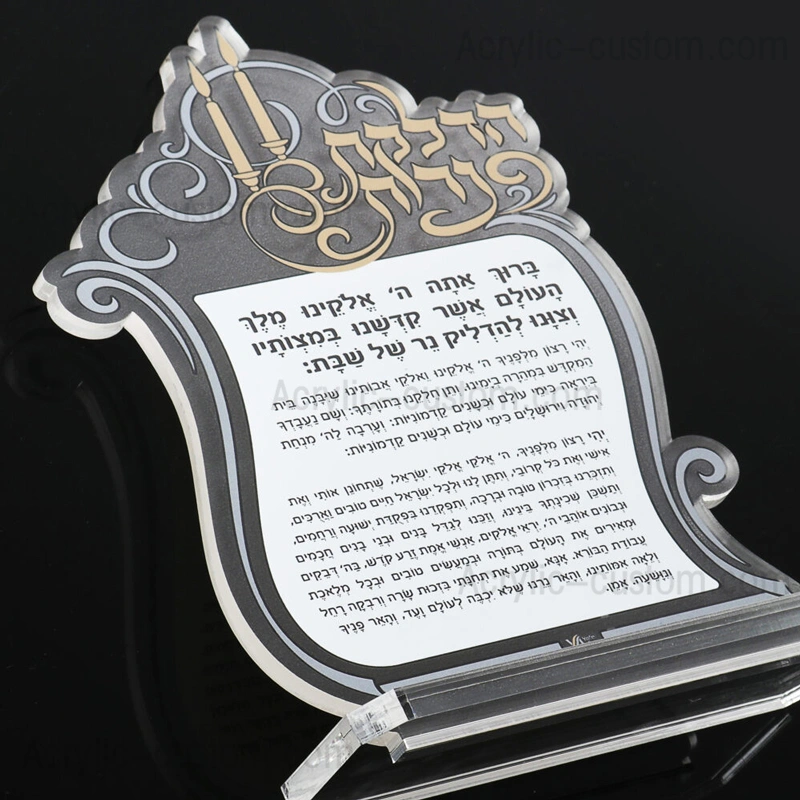 Acrylic-custom.com
הדלקת
נרות
בָּרוּךְ אַתָּה ה' אֱלֹקֵינוּ מֶלֶךְ
הָעוֹלָם אֲשֶׁר קִדְּשָׁנוּ בְּמִצְוֹתָיו
וְצִוָּנוּ לְהַדְלִיק נֵר שֶׁל שַׁבָּת:
יְהִי רָצוֹן מִלְּפָנֶיךָ ה' אֱלֹקֵינוּ וֵאלֹקֵי אֲבוֹתֵינוּ שֶׁיִּבָּנֶה בֵּית
הַמִּקְדָּשׁ בִּמְהֵרָה בְיָמֵינוּ, וְתֵן חֶלְקֵנוּ בְּתוֹרָתֶךָ: וְשָׁם נַעֲבָדְךָ
בְּיִרְאָה כִּימֵי עוֹלָם וּכְשָׁנִים קַדְמוֹנִיּוֹת: וְעָרְבָה לַה' מִנְחַת
יְהוּדָה וִירוּשָׁלָיִם כִּימֵי עוֹלָם וּכְשָׁנִים קַדְמוֹנִיּוֹת:
Acrylic-custom.com
יְהִי רָצוֹן מִלְּפָנֶיךָ, ה' אֱלֹקַי אֱלֹקֵי יִשְׂרָאֵל, שֶׁתְּחוֹנֵן אוֹתִי וְאֶת
אִישִׁי וְאֶת כָּל קְרוֹבַי, וְתִתֵּן לָנוּ וּלְכָל יִשְׂרָאֵל חַיִּים טוֹבִים וַאֲרֻכִּים,
וְתִזְכְּרֵנוּ בְּזִכְרוֹן טוֹבָה וּבְרָכָה, וְתִפְקְדֵנוּ בִּפְקֻדַּת יְשׁוּעָה וְרַחֲמִים,
וְתַשְׁכֵּן שְׁכִינָתְךָ בֵּינֵינוּ, וְזַכֵּנוּ לְגַדֵּל בָּנִים וּבְנֵי בָנִים חֲכָמִים
וּנְבוֹנִים אוֹהֲבֵי ה', יִרְאֵי אֱלֹקִים, אַנְשֵׁי אֱמֶת זֶרַע קֹדֶשׁ, בַּה' דְּבֵקִים
וּמְאִירִים אֶת הָעוֹלָם בְּתוֹרָה וּבְמַעֲשִׂים טוֹבִים וּבְכָל מְלֶאכֶת
עֲבוֹדַת הַבּוֹרֵא. אָנָּא, שְׁמַע אֶת תְּחִנָּתִי בִּזְכוּת שָׂרָה וְרִבְקָה רָחֵל
וְלֵאָה אִמּוֹתֵינוּ, וְהָאֵר נֵרֵנוּ שֶׁלֹּא יִכְבֶּה לְעוֹלָם וָעֶד, וְהָאֵר פָּנֶיךָ
וְנִוָּשֵׁעָה אָמֵן.
Acrylic-custom.com